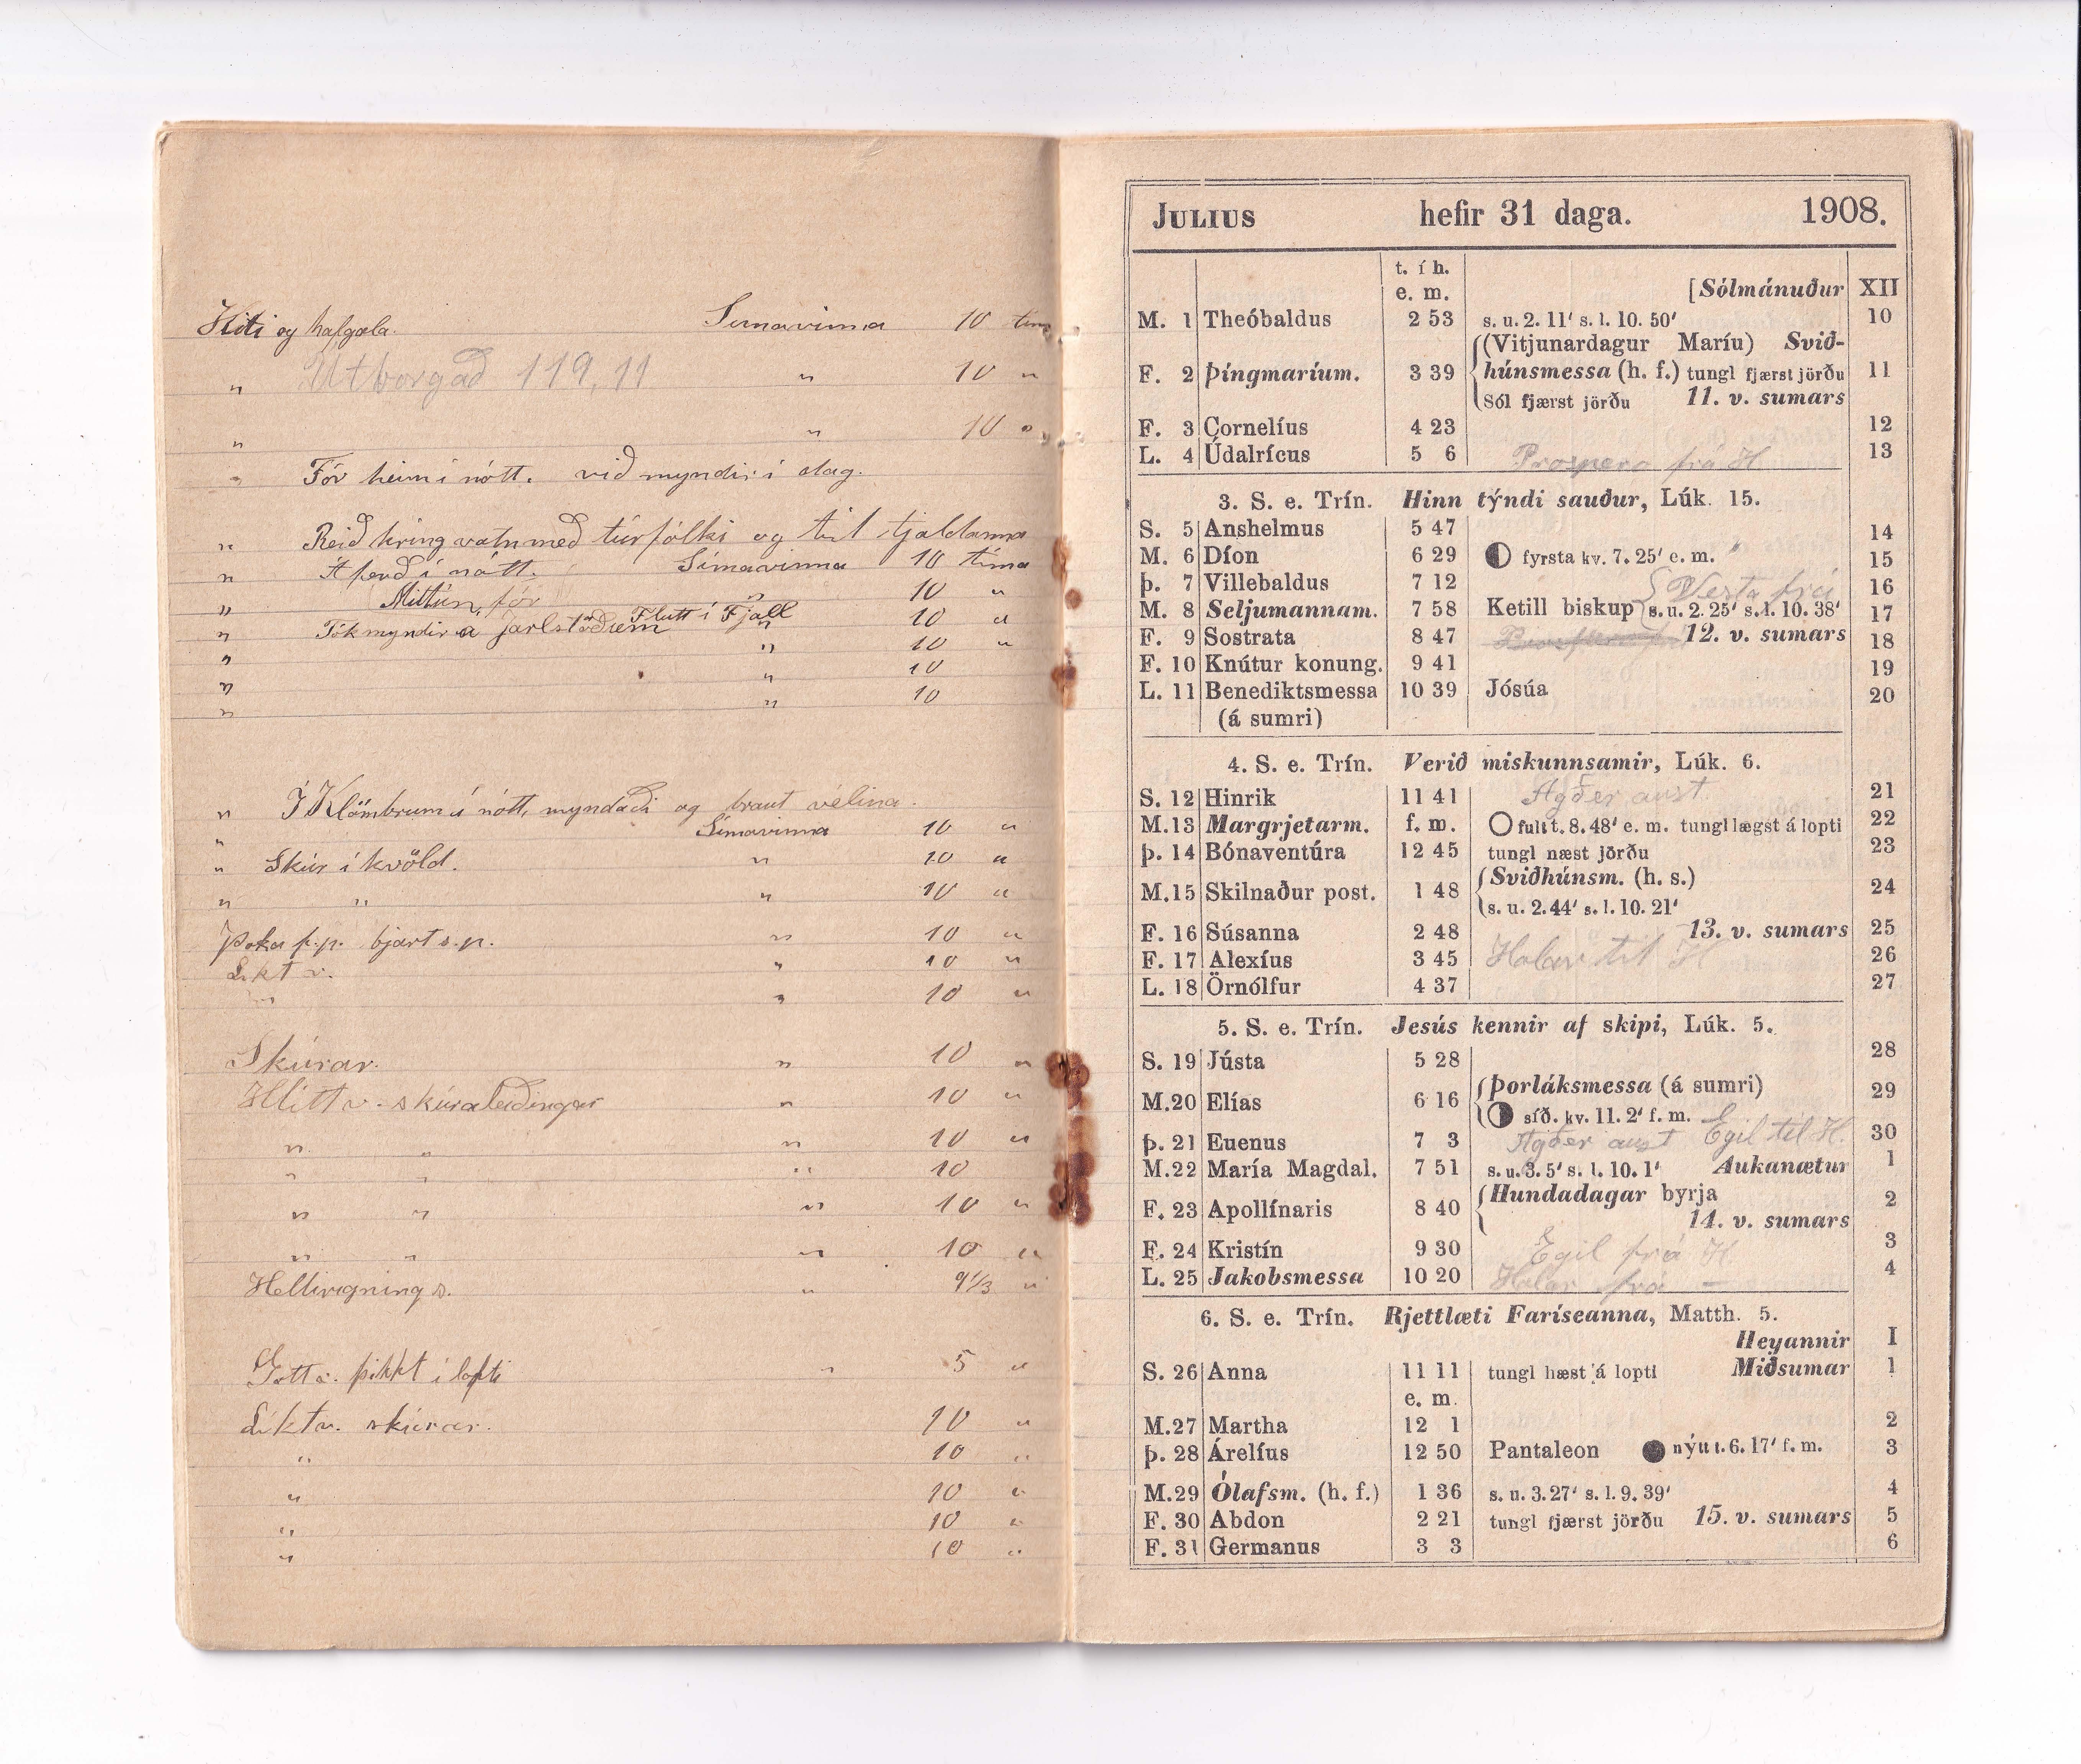 Hiti og hafgola. Símavinna 10 tíma
" Útborgað 119,11 " 10 "
" " 10 "
" Fór heim í nótt. við myndir í dag.
" Reið kring vatn með túrfólki og til tjaldanna
" Á ferð í nótt. Símavinna 10 tíma
" fór " 10 "
" Tók myndir á Jarlstöðum Flutt í Fjall " 10 "
" " 10 "
" " 10
" " 10
" Í Klömbrum í nótt, myndaði og braut vélina.
" Símavinna 10 "
" Skúr í kvöld. " 10 "
" " " 10 "
Þoka f.p. bjart s.p. " 10 "
" 10 "
" " 10 "
Skúrar. " 10 "
Hlítt v. skúraleiðingar " 10 "
" " " 10 "
" " " 10
" " " 10 "
" " " 10 "
Hellirigning s. " 9 1/3 "
Gott v. þikkt í lofti " 5 "
skúrar. 10 "
" 10 "
" 10 "
" 10 "
" 10 "
JULIUS hefir 31 daga. 1908.
t. í h.
e. m. [Sólmánuður XII
M. 1 Theóbaldus 2 53 s. u. 2. 11' s. l. 10. 50' 10
(Vitjunardagur Maríu) Svið-
F. 2 Þíngmaríum. 3 39 húnsmessa (h. f.) tungl fjærst jörðu 11
Sól fjærst jörðu 11. v. sumars
F. 3 Cornelíus 4 23 12
L. 4 Údalrícus 5 6 Prospero frá H 13
3. S. e. Trín. Hinn týndi sauður, Lúk. 15.
S. 5 Anshelmus 5 47 14
M. 6 Díon 6 29 fyrsta kv. 7. 25' e. m. 15
Þ. 7 Villebaldus 7 12 Vesta frá 16
M. 8 Seljumannam. 7 58 Ketill biskup s. u. 2. 25' s. l. 10. 38' 17
F. 9 Sostrata 8 47 12. v. sumars 18
F. 10 Knútur konung. 9 41 19
L. 11 Benediktsmessa 10 39 Jósúa 20
(á sumri)
4. S. e. Trín. Verið miskunnsamir, Lúk. 6.
S. 12 Hinrik 11 41 Agðer aust 21
M. 13 Margrjetarm. f. m. fullt t. 8. 48' e. m. tungl lægst á lopti 22
Þ. 14 Bónaventúra 12 45 tungl næst jörðu 23
Sviðhúnsm. (h. s.)
M. 15 Skilnaður post. 1 48 24
s. u. 2. 44' s. l. 10. 21'
F. 16 Súsanna 2 48 13. v. sumars 25
F. 17 Alexíus 3 45 Holar til H 26
L. 18 Örnólfur 4 37 27
5. S. e. Trín. Jesús kennir af skipi, Lúk. 5.
S. 19 Jústa 5 28 28
Þorláksmessa (á sumri)
M. 20 Elías 6 16 29
síð. kv. 11. 2' f. m.
Þ. 21 Euenus 7 3 Agðer aust Egil til H. 30
M. 22 María Magdal. 7 51 s. u. 3. 5' s. l. 10. 1' Aukanætur 1
Hundadagar byrja
F. 23 Apollínaris 8 40 2
14. v. sumars
F. 24 Kristín 9 30 Egil frá H 3
L. 25 Jakobsmessa 10 20 Holar frá — 4
6. S. e. Trín. Rjettlæti Faríseanna, Matth. 5.
Heyannir I
S. 26 Anna 11 11 tungl hæst á lopti Miðsumar 1
e. m.
M. 27 Martha 12 1 2
Þ. 28 Árelíus 12 50 Pantaleon nýtt t. 6. 17' f. m. 3
M. 29 Ólafsm. (h. f.) 1 36 s. u. 3. 27' s. l. 9. 39' 4
F. 30 Abdon 2 21 tungl fjærst jörðu 15. v. sumars 5
F. 31 Germanus 3 3 6